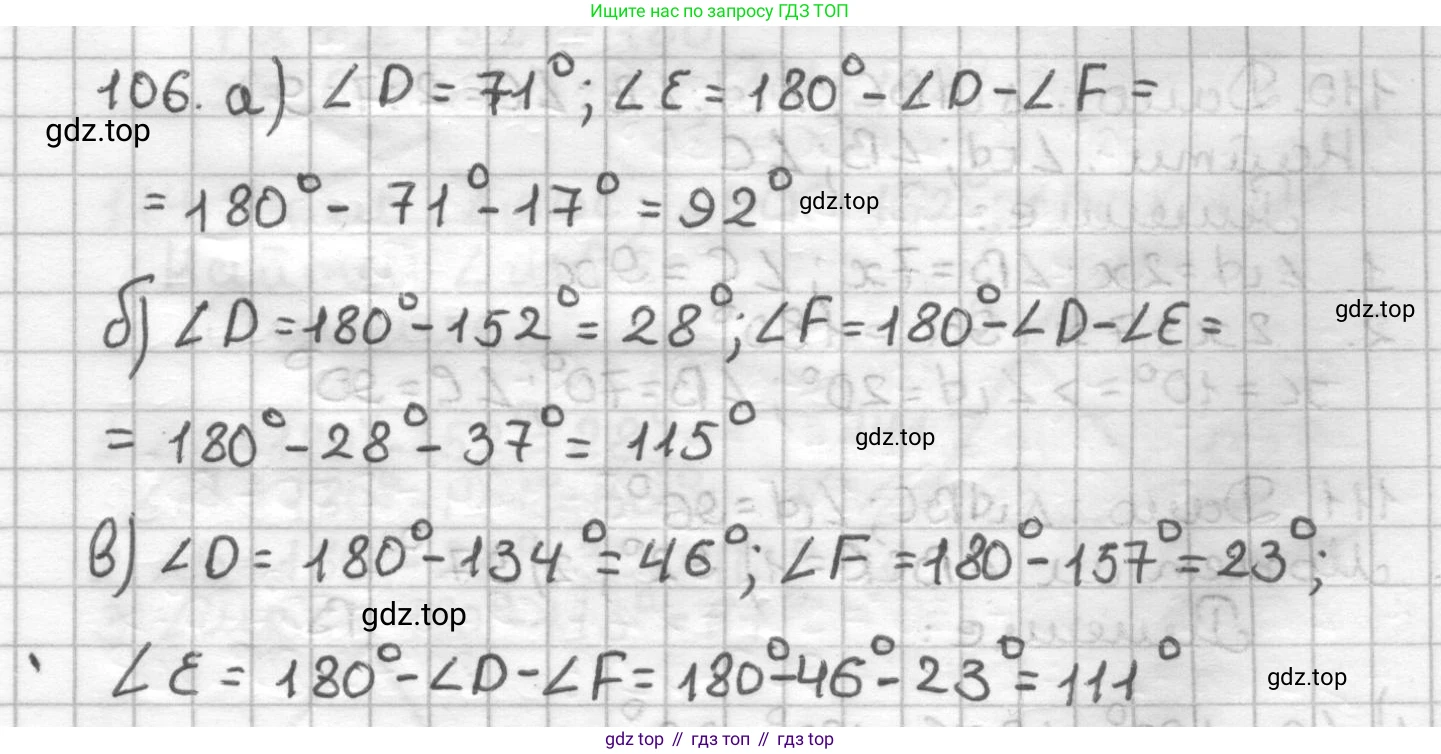 Ищите нас по запросу ГДЗ ТОП
106. а) ∠D = 71°; ∠E = 180° - ∠D - ∠F =
gdz.top
= 180° - 71° - 17° = 92°
gdz.top
б) ∠D = 180° - 152° = 28°; ∠F = 180° - ∠D - ∠E =
gdz.top
= 180° - 28° - 37° = 115°
gdz.top
в) ∠D = 180° - 134° = 46°; ∠F = 180° - 157° = 23°;
gdz.top
∠E = 180° - ∠D - ∠F = 180° - 46° - 23° = 111°
gdz.top
gdz top // гдз топ // гдз top